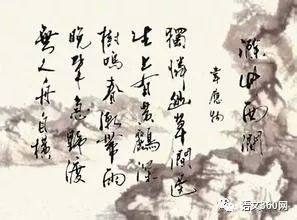 滁州西澗
韋應物
獨憐幽草澗邊
生上有黄鸝深
樹鳴春潮帶雨
晚來急野渡
無人舟自横
语文360网